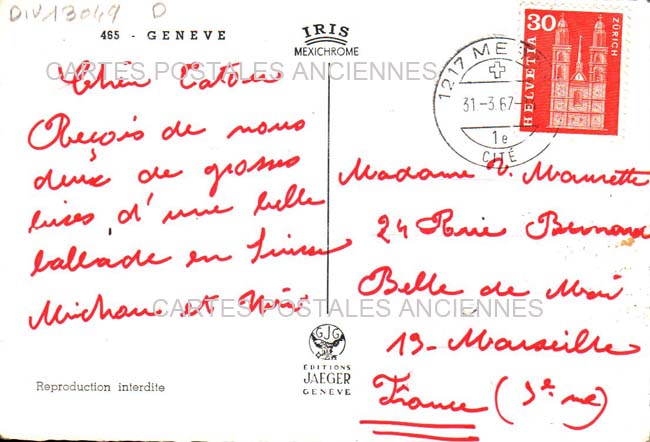 DIV13049 D
465 - GENEVE
IRIS
MEXICHROME
CARTES POSTALES ANCIENNES
Reçois de nous
deux de grosses
bises d'une belle
ballade en Suisse
Michou et
CARTES POSTALES ANCIENNES
Reproduction interdite
GJG
EDITIONS
JAEGER
GENÈVE
1217 ME
31-3.67
1e
CITÉ
30
HELVETIA
ZÜRICH
Madame V. Maurette
24 Rue Bernard
Belle de Mai
13 - Marseille
France (3e)